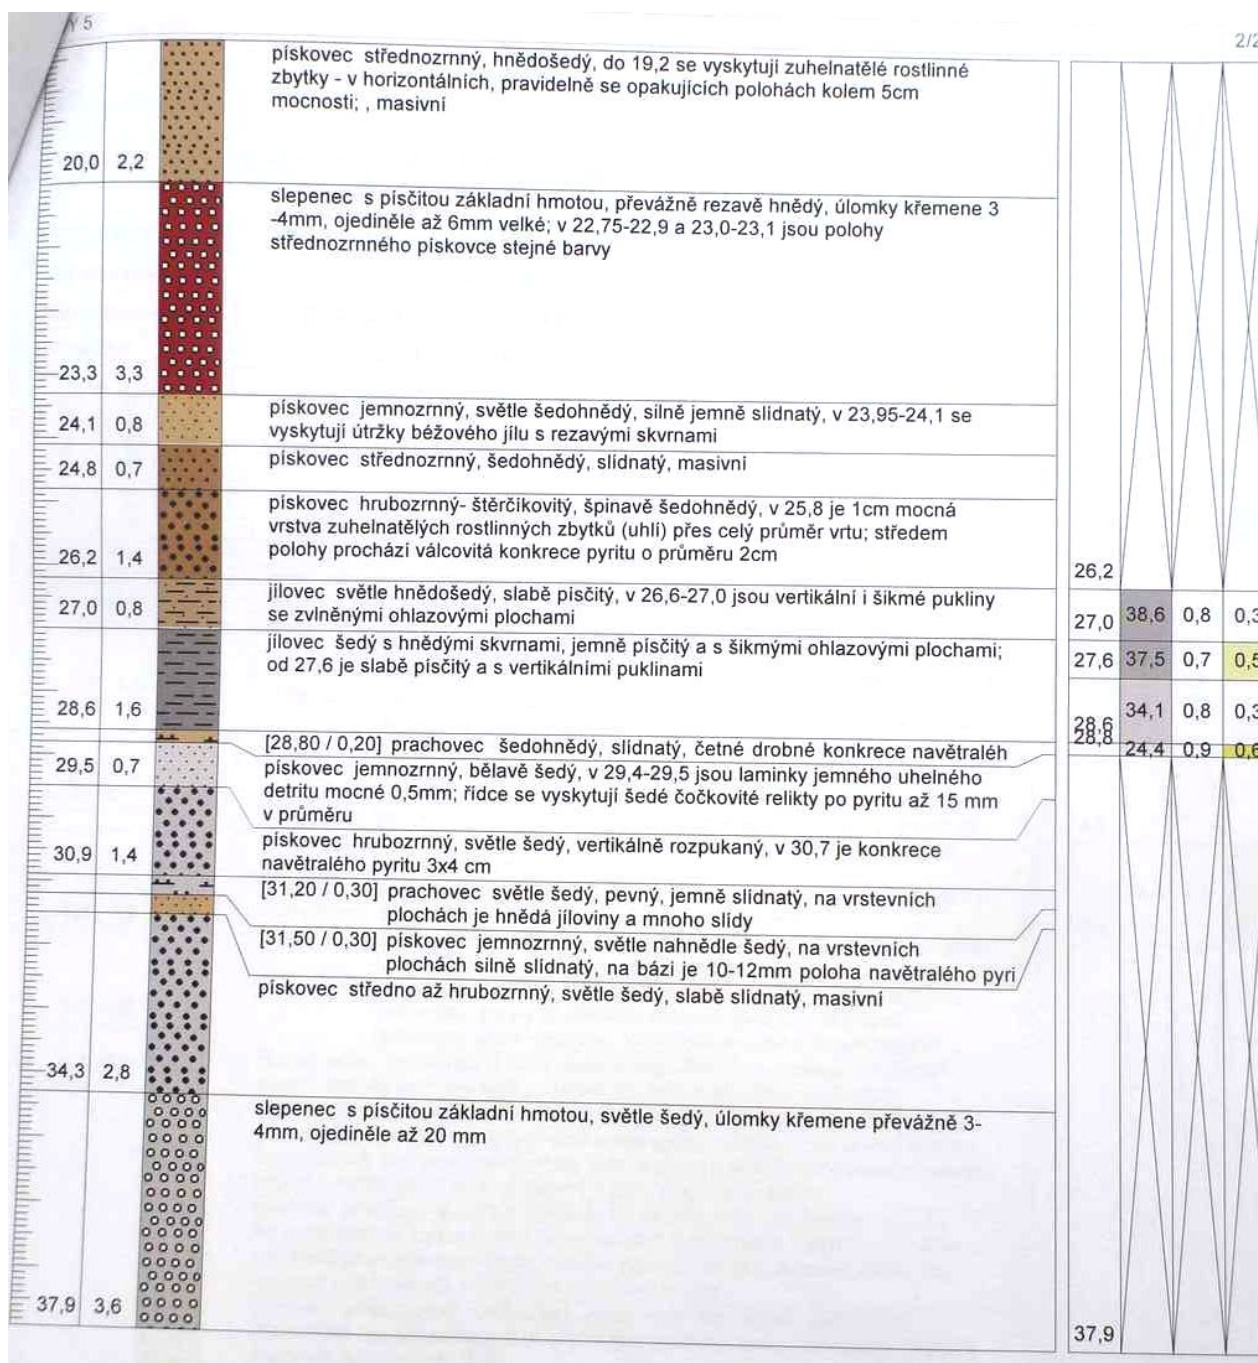 Y 5
2/2
pískovec střednozrnný, hnědošedý, do 19,2 se vyskytují zuhelnatělé rostlinné
zbytky - v horizontálních, pravidelně se opakujících polohách kolem 5cm
mocnosti; , masivní
20,0 2,2
slepenec s písčitou základní hmotou, převážně rezavě hnědý, úlomky křemene 3
-4mm, ojediněle až 6mm velké; v 22,75-22,9 a 23,0-23,1 jsou polohy
střednozrnného pískovce stejné barvy
23,3 3,3
pískovec jemnozrnný, světle šedohnědý, silně jemně slídnatý, v 23,95-24,1 se
vyskytují útržky béžového jílu s rezavými skvrnami
24,1 0,8
pískovec střednozrnný, šedohnědý, slídnatý, masivní
24,8 0,7
pískovec hrubozrnný- štěrčíkovitý, špinavě šedohnědý, v 25,8 je 1cm mocná
vrstva zuhelnatělých rostlinných zbytků (uhlí) přes celý průměr vrtu; středem
polohy prochází válcovitá konkrece pyritu o průměru 2cm
26,2 1,4
26,2
jílovec světle hnědošedý, slabě písčitý, v 26,6-27,0 jsou vertikální i šikmé pukliny
se zvlněnými ohlazovými plochami
27,0 0,8
27,0 38,6 0,8 0,3
jílovec šedý s hnědými skvrnami, jemně písčitý a s šikmými ohlazovými plochami;
od 27,6 je slabě písčitý a s vertikálními puklinami
27,6 37,5 0,7 0,5
28,6 1,6
28,6 34,1 0,8 0,3
28,8 24,4 0,9 0,6
[28,80 / 0,20] prachovec šedohnědý, slídnatý, četné drobné konkrece navětraléh
pískovec jemnozrnný, bělavě šedý, v 29,4-29,5 jsou laminky jemného uhelného
detritu mocné 0,5mm; řídce se vyskytují šedé čočkovité relikty po pyritu až 15 mm
v průměru
29,5 0,7
pískovec hrubozrnný, světle šedý, vertikálně rozpukaný, v 30,7 je konkrece
navětralého pyritu 3x4 cm
30,9 1,4
[31,20 / 0,30] prachovec světle šedý, pevný, jemně slídnatý, na vrstevních
plochách je hnědá jíloviny a mnoho slídy
[31,50 / 0,30] pískovec jemnozrnný, světle nahnědle šedý, na vrstevních
plochách silně slídnatý, na bázi je 10-12mm poloha navětralého pyri
pískovec středno až hrubozrnný, světle šedý, slabě slídnatý, masivní
34,3 2,8
slepenec s písčitou základní hmotou, světle šedý, úlomky křemene převážně 3-
4mm, ojediněle až 20 mm
37,9 3,6
37,9